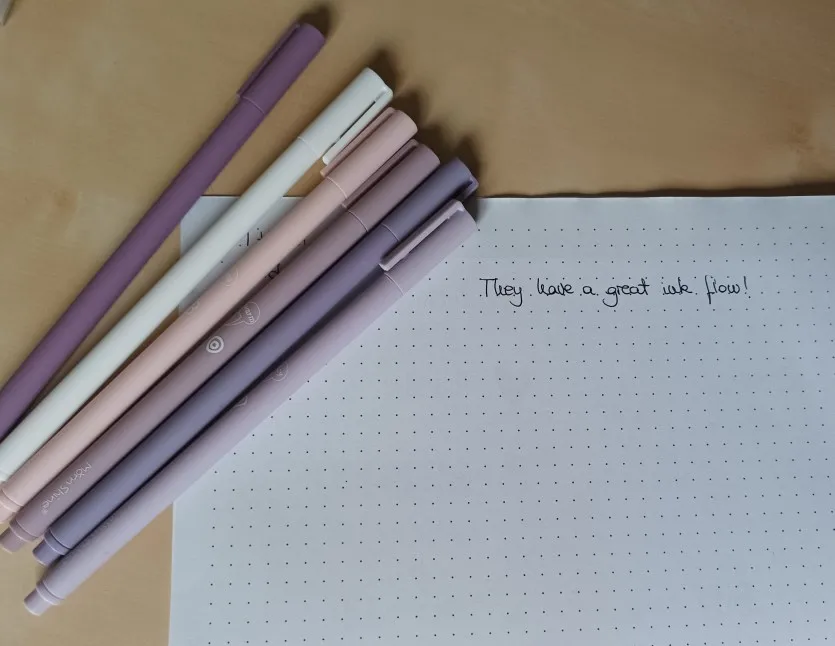 They have a great ink flow!